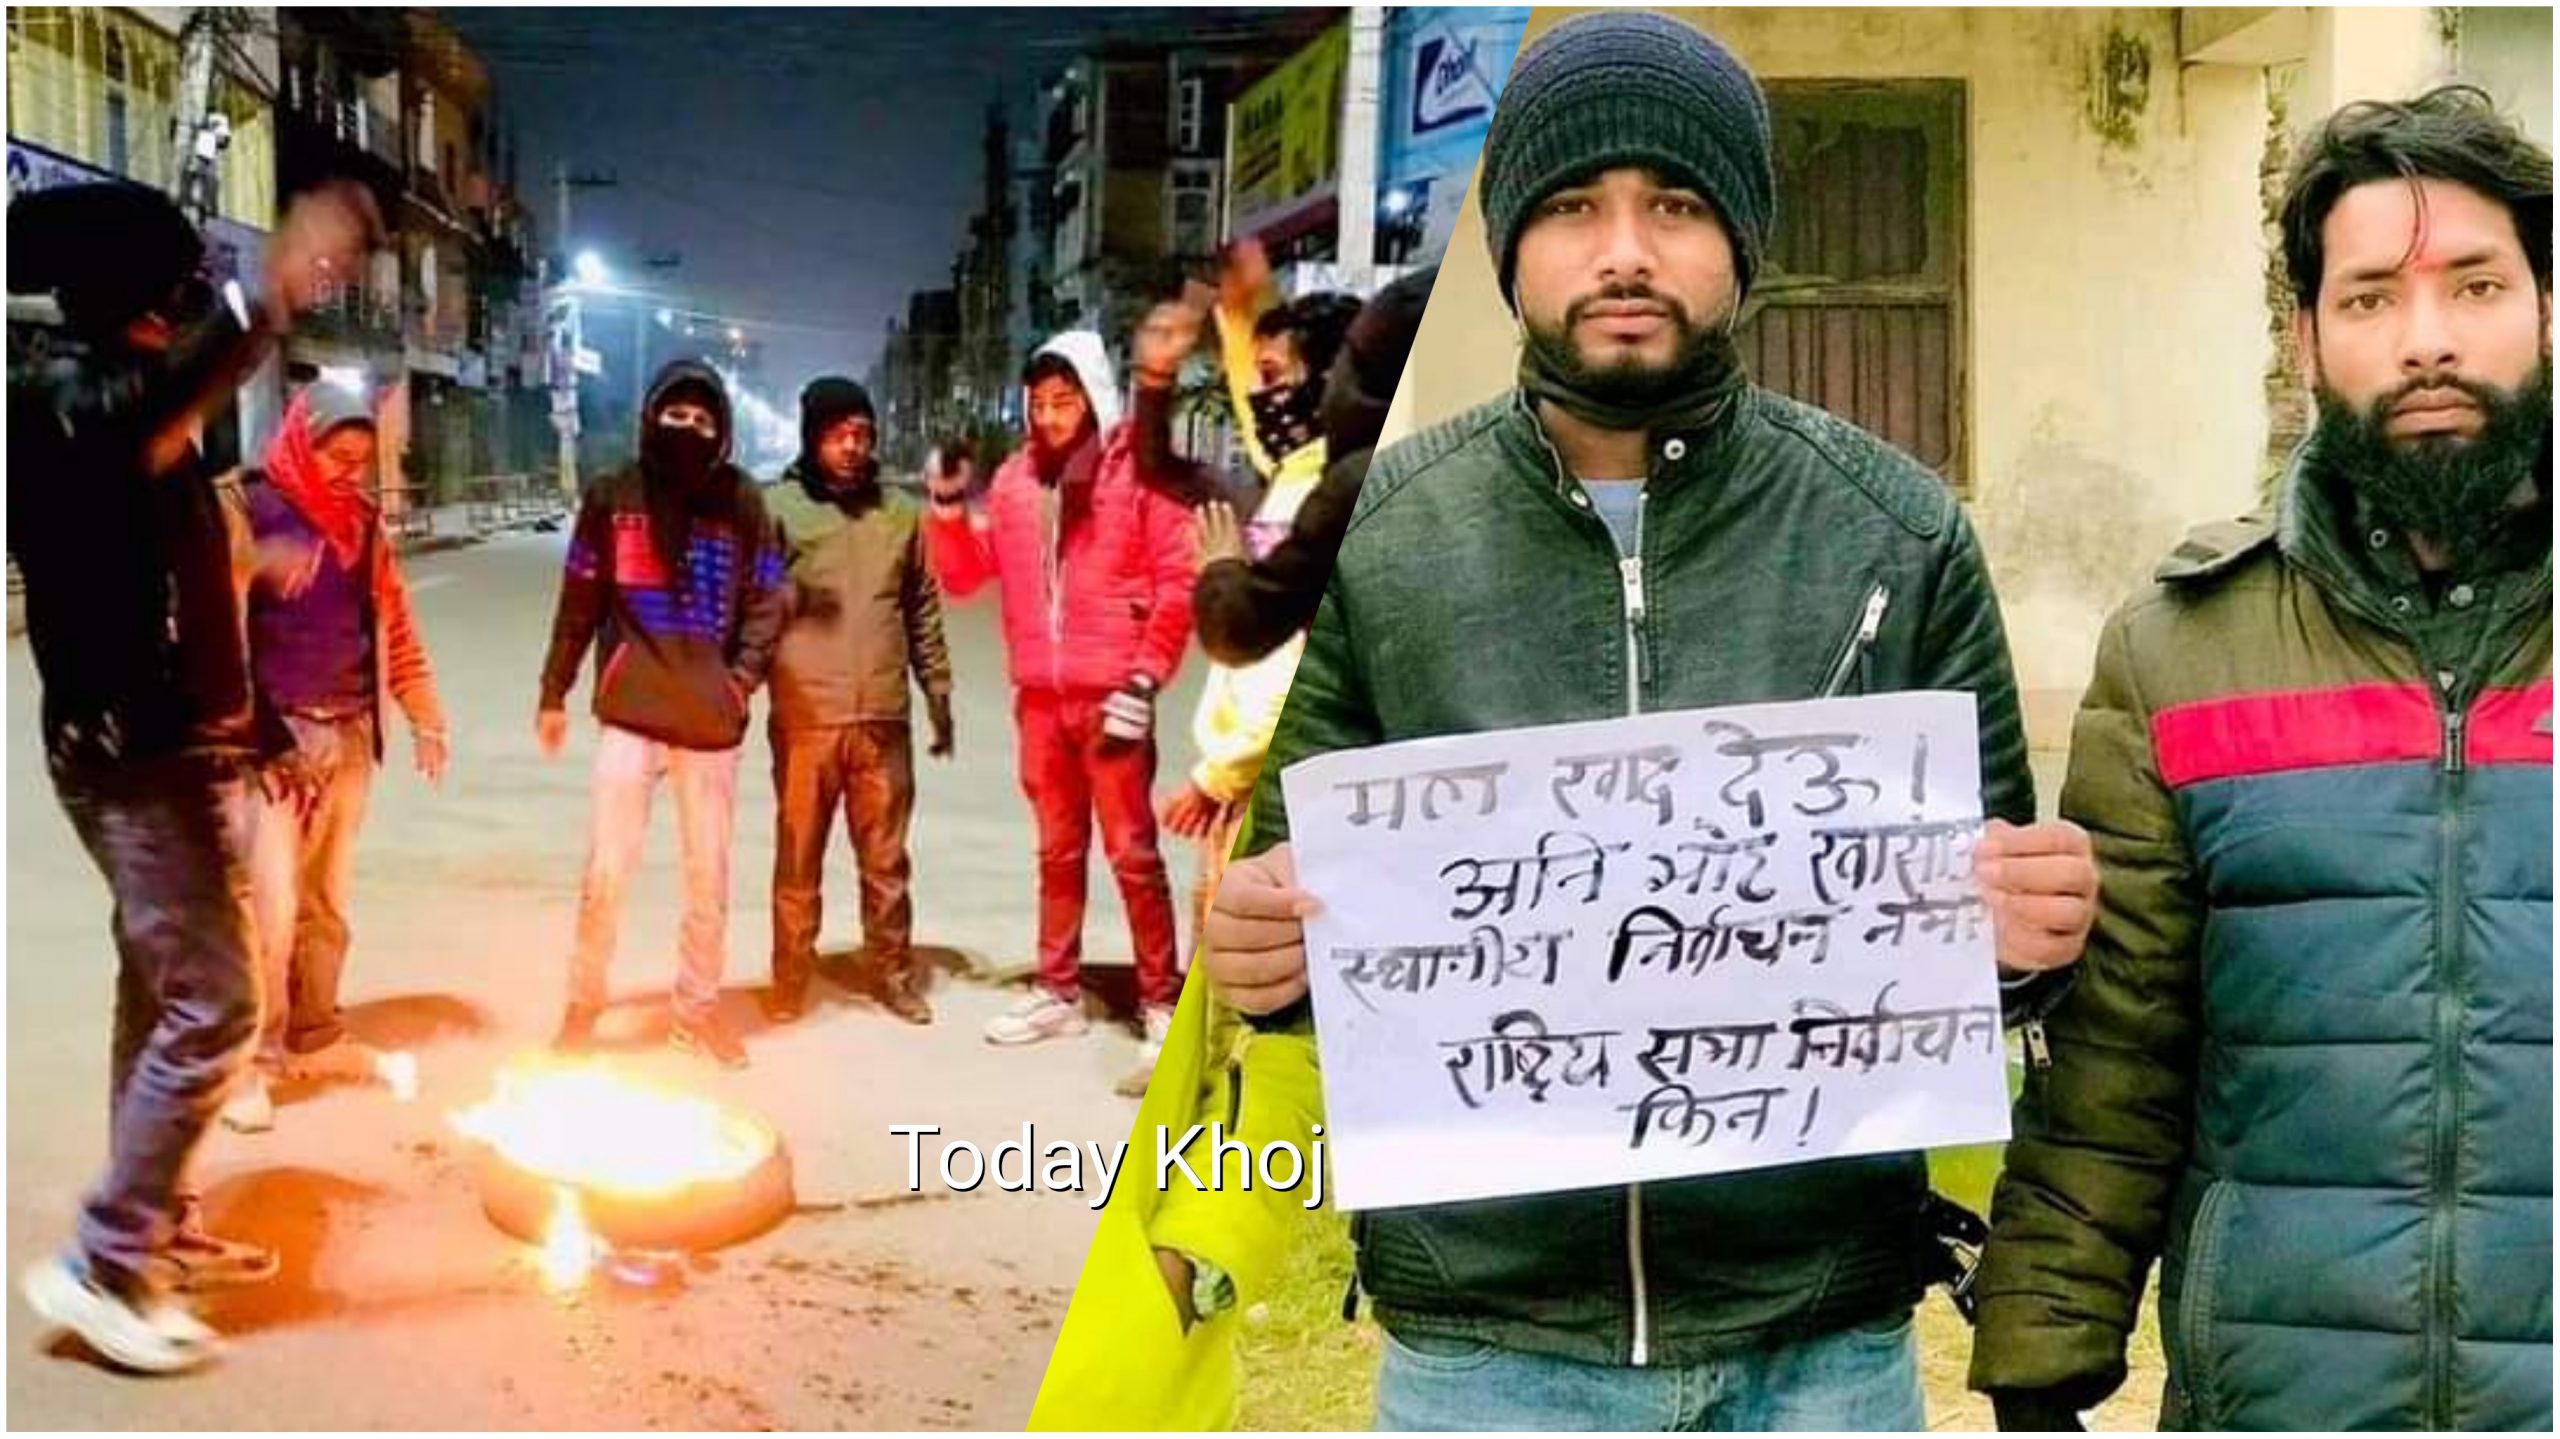 मल खाद देऊ!
अनि भोट
स्थानीय निर्वाचन
राष्ट्रिय सभा निर्वाचन
किन!
Today Khoj